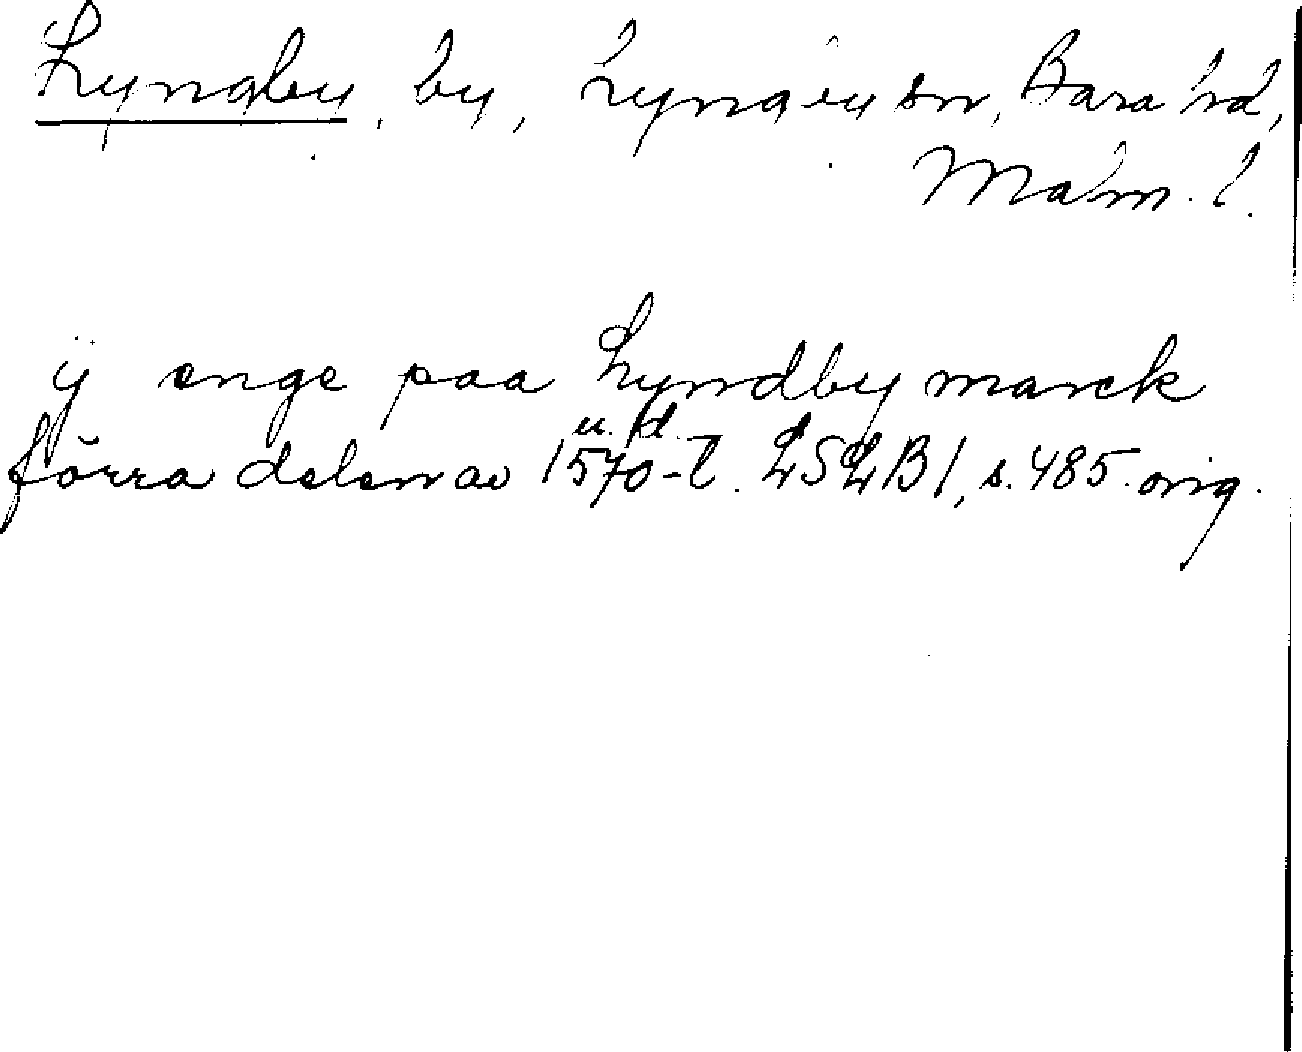 Lyngby, by, Lyngby sn, Bara hd,
Malm. l.
ÿ enge paa Lyndby marck
u. d.
förra delen av 1570-t. LSLB 1, s. 485. orig.